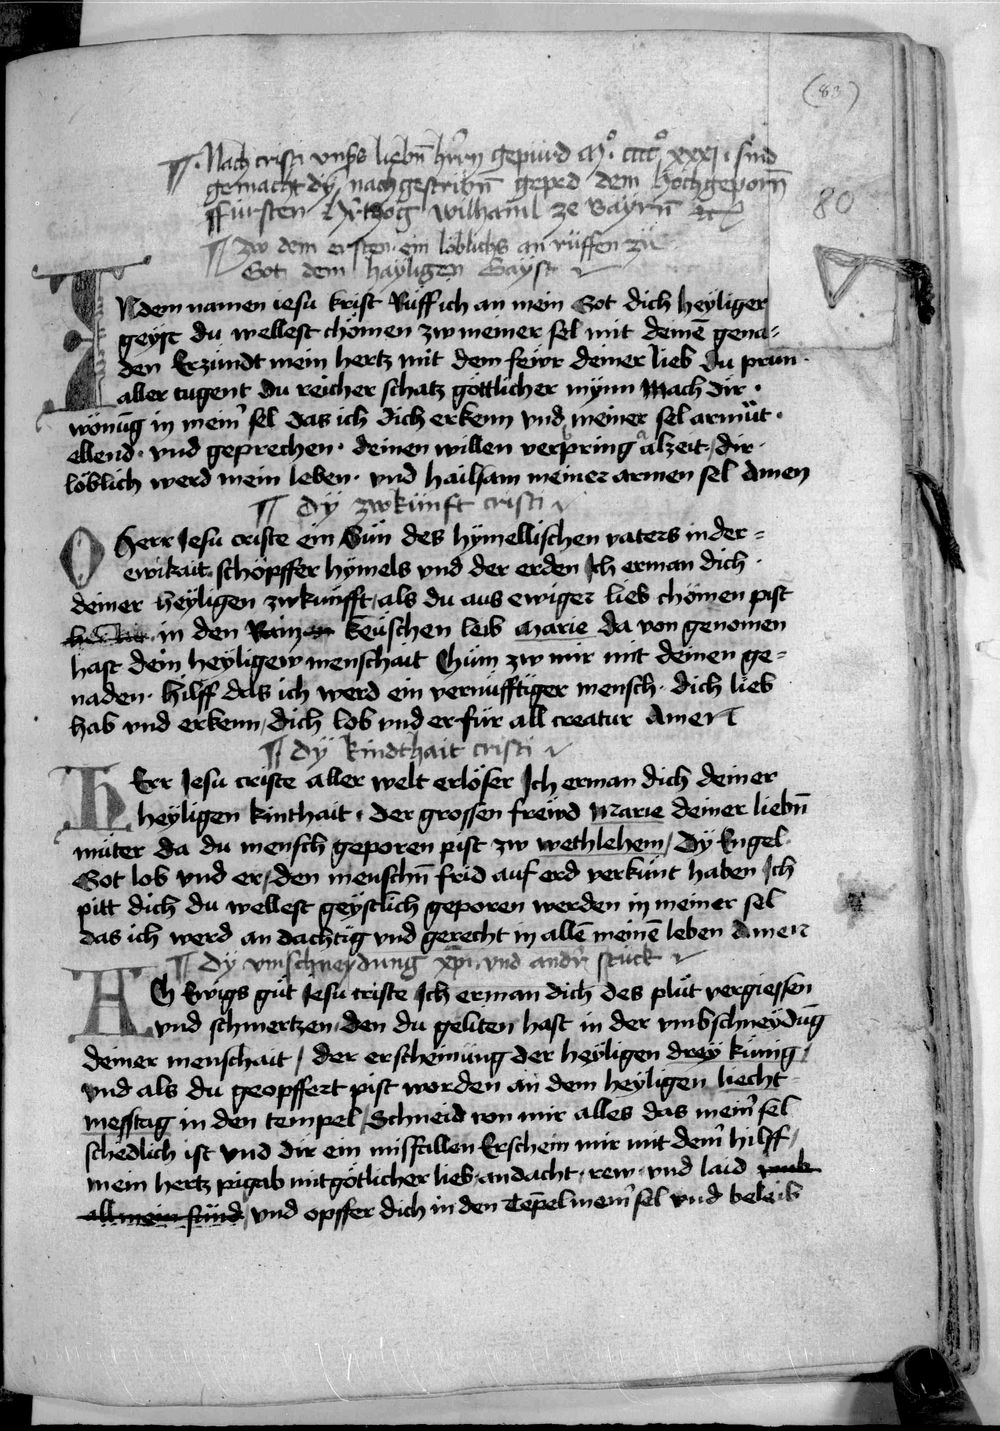 (83)
¶ · Nach cristi vnsˢ liebn̄ hrˀrn gepurd Mº · ccccº xxxj · sind
gemacht dÿ nachgeschribn̄ geped dem hochgeporn̄
80
Fürsten Hertzog wilhaml ze Bayrn̄ etc
¶ zw dem ersten · ein löblichs an rüffen zü
Got dem hayligen Gayst
INdem namen iesu krist Rüff ich an mein Got dich heyliger
geyst du wellest chömen zw meiner sel mit deinē gena=
den Erzündt mein hertz mit dem fewr deiner lieb du prun ·
aller tugent du reicher schatz göttlicher mynn Mach dir ·
wonūg in meinˀ sel das ich dich erkenn vnd meiner sel armüt ·
ellend · vnd geprechen · deinen willen verpring alzeit / dir ·
löblich werd mein leben · vnd hailsam meiner armen sel Amen
¶ Dÿ zwkünft cristi
O Herr Jesu criste ein Sun des hymellischen vaters in der =
ewikait · schöpffer hymels vnd der erden Ich erman dich ·
deiner heyligen zwkunfft / als du aus ewiger lieb chömen pist
in den Rain keüschen leib Marie da von genomen
hast dein heyligew menschait Chüm zw mir mit deinen ge=
naden · hilff das ich werd ein vernüfftiger mensch · dich lieb
hab vnd erkenn / dich lob vnd er für all creatur Amen
¶ Dÿ kindthait cristi
HErr Jesu criste aller welt erlöser Ich erman dich deiner
heyligen kinthait · der grossen frewd Marie deiner liebn̄
müter da du mensch geporen pist zw wethlehem / Dÿ Engel ·
Got lob vnd er / den menschn̄ frid auf erd verkünt haben Ich
pitt dich du wellest geystlich geporen werden in meiner sel
das ich werd an dachtig vnd gerecht in allē meinē leben Amen
¶ Dÿ vmschneydung xp̄i vnd andrˀ stuck
ACh Ewigs güt Jesu criste Ich erman dich des plüt vergiessen
vnd schmertzen den du geliten hast in der vmbschneydūg
deiner menschait / der erscheinüng der heyligen drey künig /
vnd als du geopffert pist worden an dem heyligen liecht
messtag in den tempel / Schneid von mir alles das meinˀ sel
schedlich ist vnd dir ein misfallen Erschein mir mit deinˀ hilff /
mein hertz pigab mit götlicher lieb · andacht · rew · vnd laid
all mein sünd / vnd opffer dich in den Tēpel meinˀ sel vnd beleib